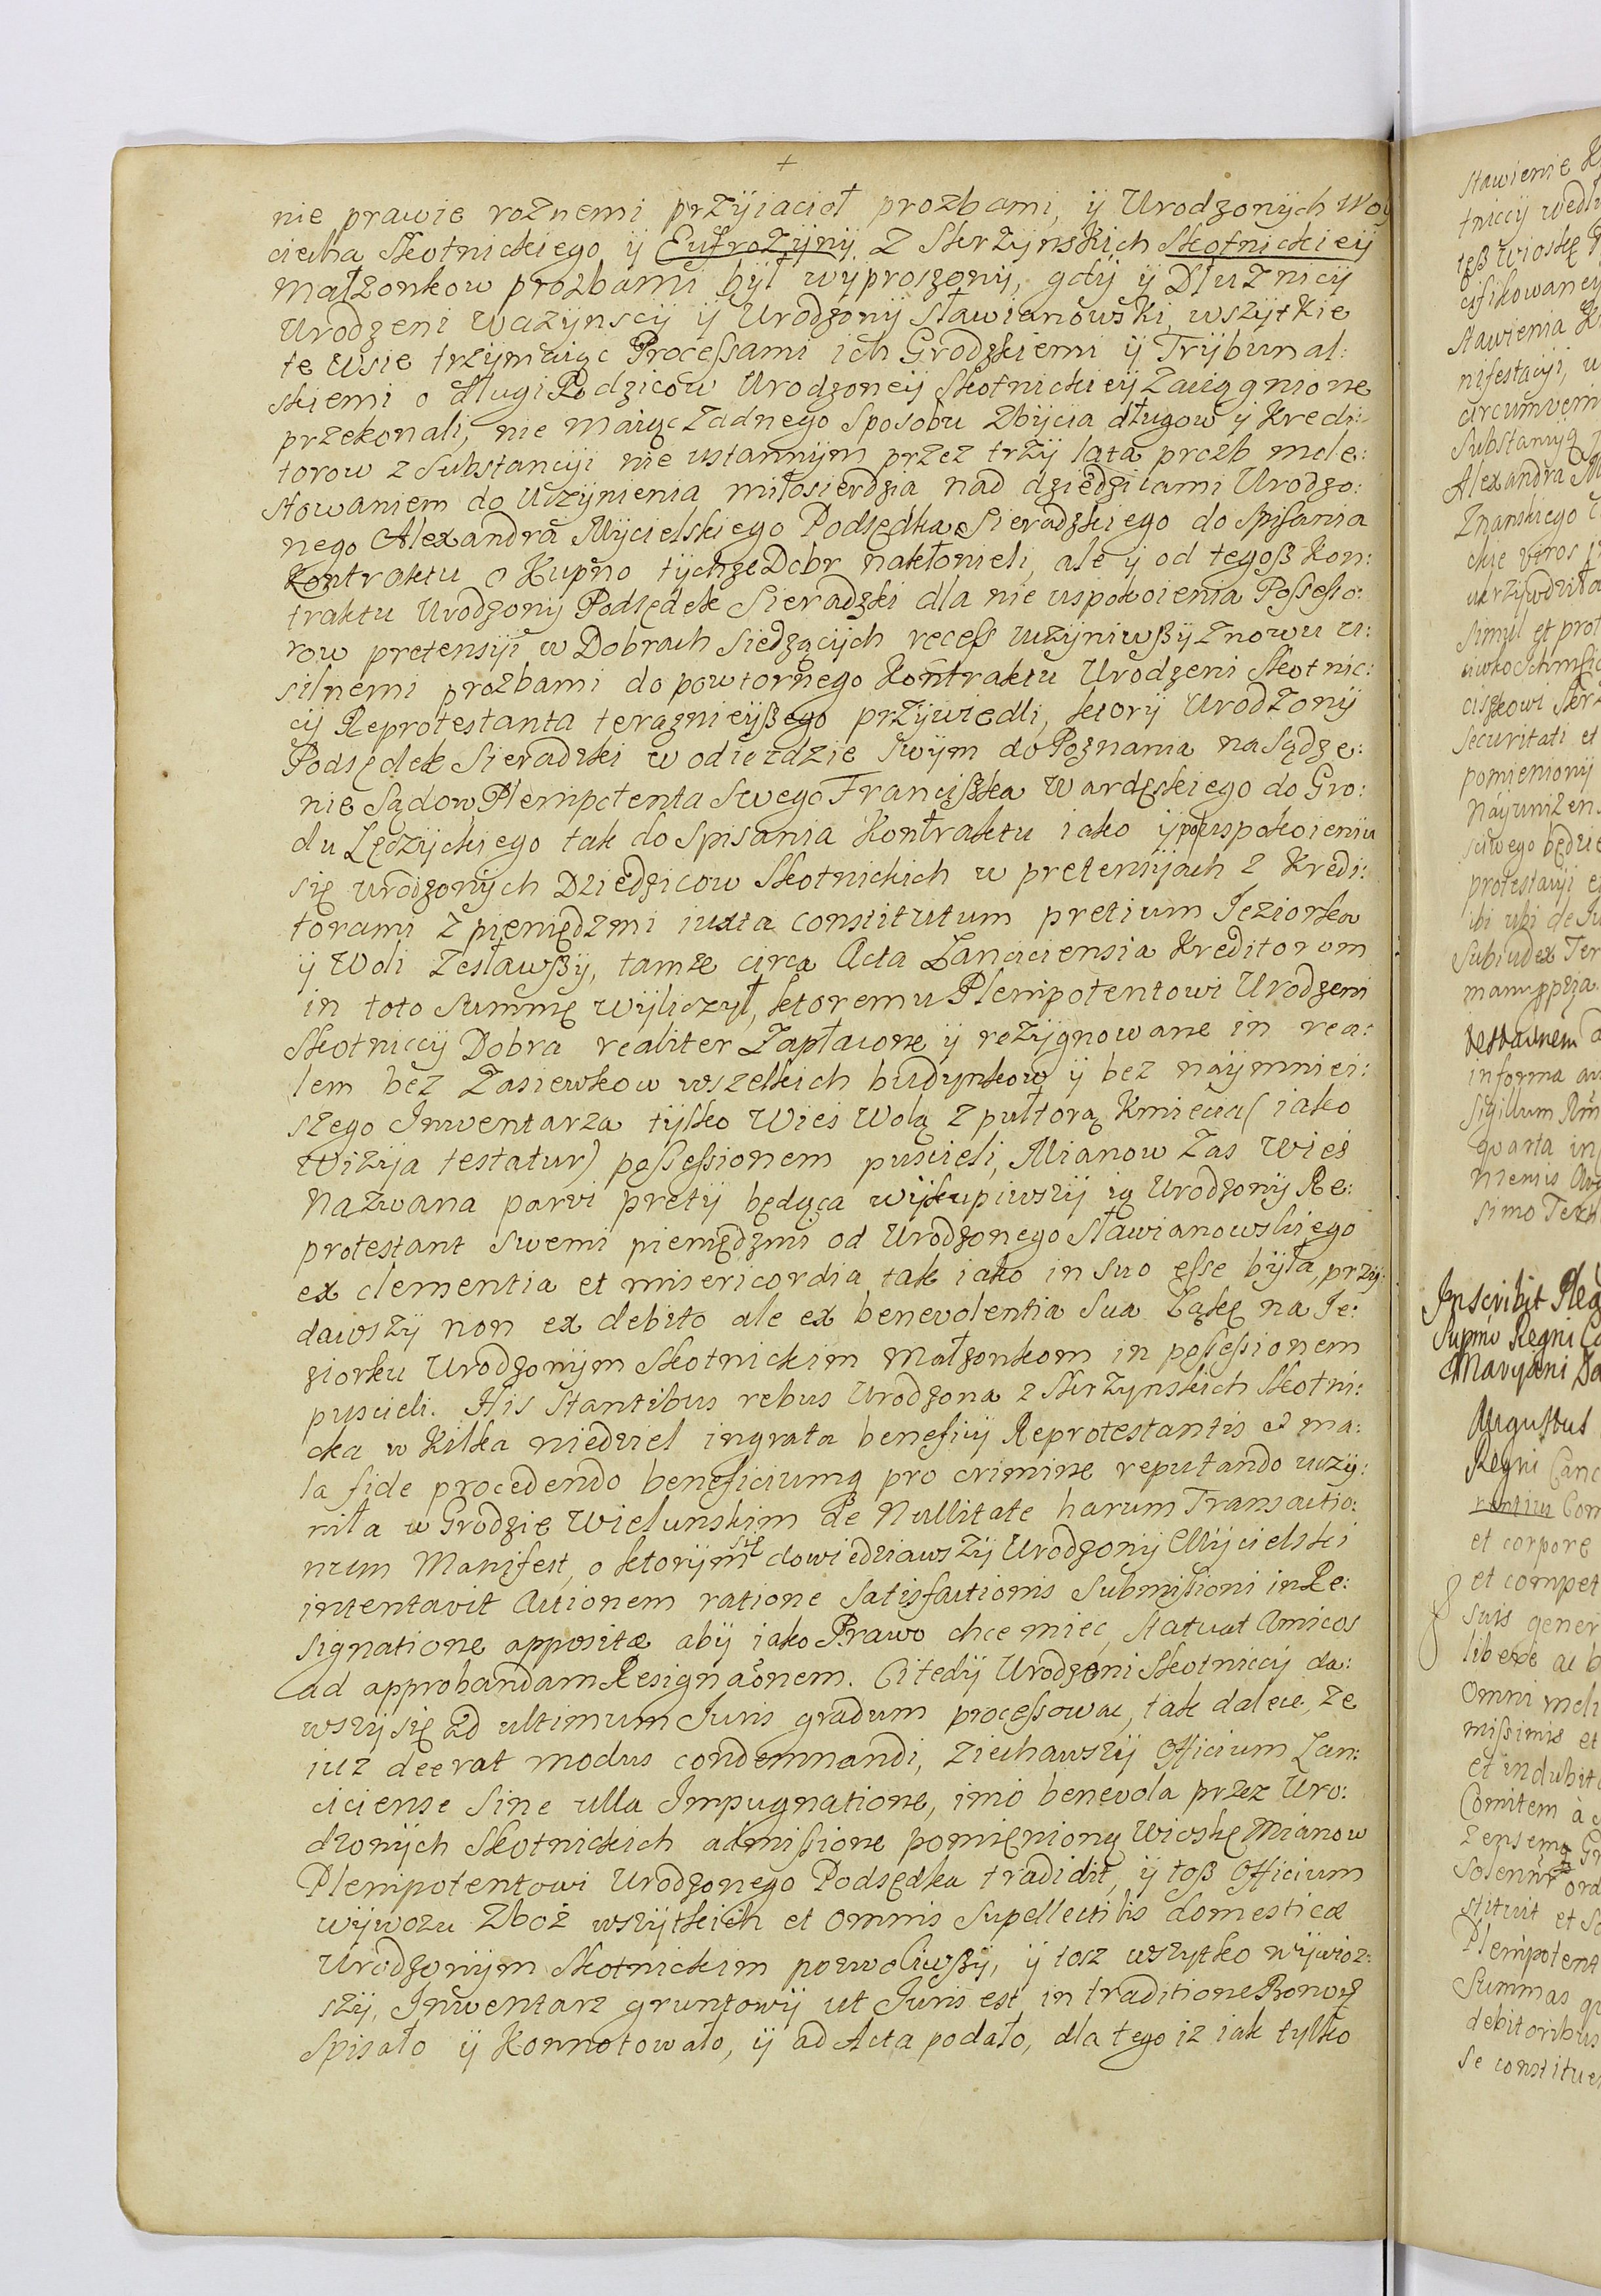 +
nie prawie roznemi przÿiacioł prozbami, ÿ Urodzonÿch Woÿ
ciecha Skotnickiego ÿ Eufrozÿnÿ z Skrzÿnskich Skotnickieÿ
Małzonkow prozbami bÿł wÿproszonÿ, gdÿ ÿ Dłuznicÿ
Urodzeni Wazÿnscÿ ÿ Urodzonÿ Sławianowski, wszÿtkie
te wsie trzÿmaiąc Processami ich Grodzkiemi ÿ Trÿbunal:
skiemi o długi Rodzicow Urodzoneÿ Skotnickieÿ zaciągnione
przekonali, nie maiąc zadnego sposobu zbÿcia długow ÿ Kredi:
torow z substancÿi nie ustannÿm przez trzÿ lata prozb mole:
stowaniem do uczÿnienia miłosierdzia nad dziedzicami Urodzo:
nego Alexandra Mÿcielskiego Podsędka Sieradzkiego do spisania
Kontraktu o Kupno tÿchze Dobr nakłonieli, ale ÿ od tegoß Kon:
traktu Urodzonÿ Podsędek Sieradzki dla nie uspokoienia Possesso:
row pretensÿi w Dobrach siedzącÿch recess uczÿniwßÿ znowu u:
silnemi prozbami do powtornego Kontraktu Urodzeni Skotnic:
cÿ Reprotestanta teraznieÿßego przÿwiedli, ktorÿ Urodzonÿ
Podsędek Sieradzki w odiezdzie swÿm do Poznania na sądze:
nie Sądow Plempotenta swego Francißka Wardęskiego do Gro:
du Łęczÿckiego tak do spisania Kontraktu iako ÿ po uspokoieniu
się urodzonÿch Dziedzicow Skotnickich w pretensÿach z Kredi:
torami z pieniędzmi iuxta constitutum pretium Jeziorka
ÿ Woli zesławßÿ, tamze circa Acta Lanciciensia Kreditorom
in toto summę wÿliczÿł, ktoremu Plempotentowi Urodzeni
Skotniccÿ Dobra realiter zapłacone ÿ rezÿgnowane in rea:
lem bez zasiewkow wszelkich budÿnkow ÿ bez naÿmniei:
szego Inwentarza tÿlko Wies Wolą z pułtorą Kmiecia (iako
Wizÿa testatur) possessionem puscieli, Mianow zas wieś
nazwana parvi pretÿ będąca wÿkupiwszÿ ią Urodzonÿ Re:
protestant swemi pieniędzmi od Urodzonego Sławianowskiego
ex clementia et misericordia tak iako in suo esse bÿła, przÿ:
dawszÿ non ex debito ale ex benevolentia sua Łąkę na Je:
ziorku Urodzonÿm Skotnickim Małzonkom in possessionem
puscieli. His stantibus rebus Urodzona z Skrzÿnskich Skotni:
cka w kilka niedziel ingrata beneficÿ Reprotestantis et ma:
la fide procedendo beneficiumq pro crimine reputando uczÿ:
niła w Grodzie Wielunskim de Nullitate harum Transactio:
num Manifest, o ktorÿm się dowiedziawszÿ Urodzonÿ Mÿcielski
intentavit Actionem ratione satisfactionis submissioni in Re:
signatione appositæ abÿ iako Prawo chce miec, statuat Amicos
ad approbandam Resignaõnem. Ci tedÿ Urodzeni Skotniccÿ da:
wszÿ się ad ultimum Juris gradum processowac, tak dalece, ze
iuz deerat modus condemnandi, ziechawszÿ Officium Lan:
ciciense sine ulla Impugnatione, imo benevola przez Uro:
dzonÿch Skotnickich admissione pomienioną Wioskę Mianow
Plempotentowi Urodzonego Podsędka tradidit, ÿ toß Officium
wÿwozu zboż wszÿtkich et omnis supellectilis domesticæ
Urodzonÿm Skotnickim pozwoliwßÿ, ÿ tosz wszÿtko wÿwioz:
szÿ, Inwentarz gruntowÿ ut Juris est in traditione Bonorų
spisało ÿ Konnotowało, ÿ ad Acta podało, dla tego iz iak tÿlko
stawienie
tniccÿ wedłu
teß wioskę
cifikowaneÿ
stawienia
nifestacÿi, u
circumveni
Substancÿą
Alexandra
Znanskiego
ckie
ukrzÿwdziła
simul et prot
ciszkowi Skrz
securitati et
pomienionÿ
naÿunizen
sciwego będzie
protestacÿi
ibi ubi de Ju
Subiudex Ter
manuppria
in forma au
sigillum
quarta in
mensis
simo
Inscribit Ple
Supmi Regni Ca
Augustus
Regni Canc
Com
et corpore
et compet
suis gener
libere ac b
omni meli
missimis et
et indubit
Comitem à
stituit et
Plempotent
Summas qu
debitoribus
se constitue